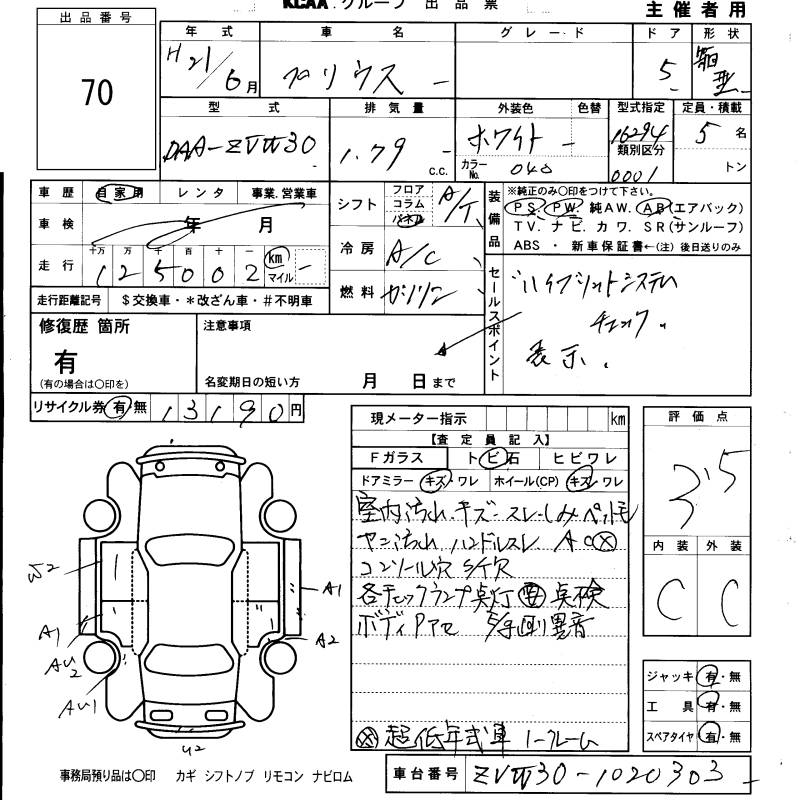 KCAA.グループ 出品票
主催者用
出品番号
70
年式 車名 グレード ドア 形状
H21/6月 プリウス - 5 箱型
型式 排気量 外装色 色替 型式指定 定員・積載
DAA-ZVW30 1.79 c.c. ホワイト - 16294 5名
カラーNo. 040 類別区分 0001 トン
車歴 自家用 レンタ 事業.営業車
車検 年 月
走行 十万 万 千 百 十 一 km マイル
125002 -
走行距離記号 $交換車・*改ざん車・#不明車
シフト フロア コラム パネル A/T
冷房 A/C
燃料 ガソリン
装備品
※純正のみ○印をつけて下さい。
PS. PW. 純AW. AB(エアバック)
TV. ナビ. カワ. SR(サンルーフ)
ABS ・ 新車保証書←(注)後日送りのみ
セールスポイント
ハイブリットシステム
チェック
表示.
修復歴 箇所
有
(有の場合は○印を)
注意事項
名変期日の短い方 月 日まで
リサイクル券 有・無 13190円
現メーター指示 km
【査定員記入】
Fガラス トビ石 ヒビワレ
ドアミラー キズ・ワレ ホイール(CP) キズ・ワレ
室内汚れ.キズ-スレ-しみ-ペット毛
ヤニ汚れ ハンドルスレ AC
コンソール穴 S/F穴
各チェックランプ点灯 要 点検
ボディPアセ 異音
超低年式車
車台番号 ZVW30-1020303-
評価点
3.5
内装 外装
C C
ジャッキ 有・無
工具 有・無
スペアタイヤ 有・無
W2
A1
A1
A2
AU2
AU1
U2
事務局預り品は○印 カギ シフトノブ リモコン ナビロム